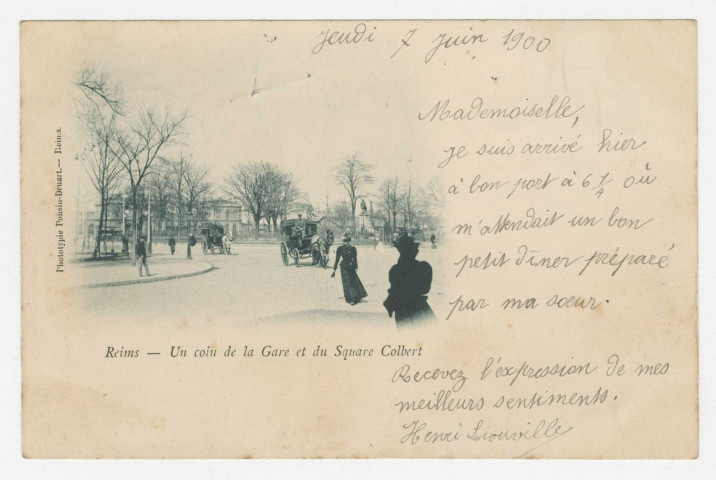 Jeudi 7 juin 1900
Mademoiselle,
je suis arrivé hier
à bon port à 6 1/4 où
m'attendait un bon
petit dîner préparé
par ma sœur.
Recevez l'expression de mes
meilleurs sentiments.
Henri Liouville
Reims — Un coin de la Gare et du Square Colbert
Phototypie Ponsin-Druart. — Reims.